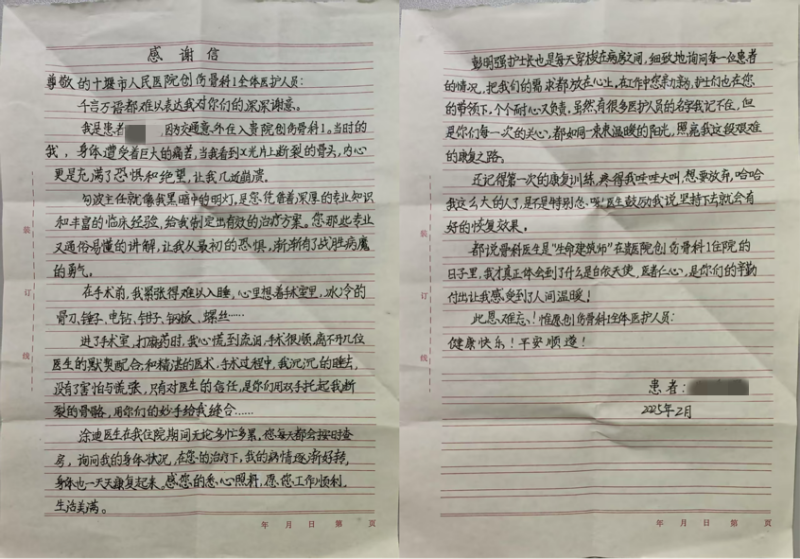 感谢信
尊敬的十堰市人民医院创伤骨科1全体医护人员:
千言万语都难以表达我对你们的深深谢意。
我是患者 ,因为交通意外住入贵院创伤骨科1。当时的
我,身体遭受着巨大的痛苦,当我看到X光片上断裂的骨头,内心
更是充满了恐惧和绝望,让我几近崩溃。
勾波主任就像我黑暗中的明灯,是您,凭借着深厚的专业知识
和丰富的临床经验,给我制定出有效的治疗方案。您那些专业
又通俗易懂的讲解,让我从最初的恐惧,渐渐有了战胆病魔
的勇气。
在手术前,我紧张得难以入睡,心里想着手术室里,冰冷的
骨刀、锤子、电钻、钳子、钢板、螺丝……
进了手术室,打麻药时,我心慌到流泪,手术很顺,离不开几位
医生的默契配合,和精湛的医术,手术过程中,我沉沉的睡去,
没有了害怕与慌张,只有对医生的信任,是你们用双手托起我断
裂的骨骼,用你们的妙手给我缝合……
涂迪医生在我住院期间无论多忙多累,您每天都会按时查
房,询问我的身体状况,在您的治疗下,我的病情逐渐好转,
身体也一天天康复起来。感您的悉心照料,愿您工作顺利,
生活美满。
年 月 日 第 页
装
订
线
彭明强护士长也是每天穿梭在病房之间,细致地询问每一位患者
的情况,把我们的需求都放在心上,在工作中您亲力亲为,护士们也在您
的带领下,个个耐心又负责,虽然有很多医护人员的名字我记不住,但
是你们每一次的关心,都如同一束束温暖的阳光,照亮我这段艰难
的康复之路。
还记得第一次的康复训练,疼得我哇哇大叫,想要放弃,哈哈
我这么大的人了,是不是特别怂,呀!医生鼓励我说坚持下去就会有
好的恢复效果。
都说骨科医生是“生命建筑师”在贵医院创伤骨科1住院的
日子里,我才真正体会到了什么是白衣天使,医者仁心,是你们的辛勤
付出让我感受到了人间温暖!
此恩难忘!惟愿创伤骨科1全体医护人员:
健康快乐!平安顺遂!
患者:
2025年2月
年 月 日 第 页
装
订
线